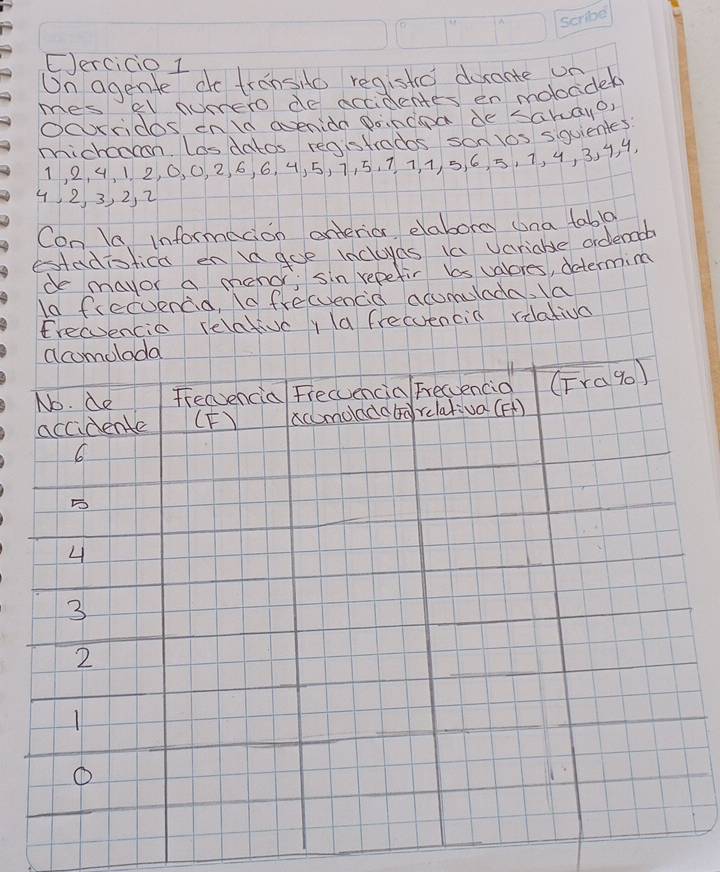 Scribe
Ejercicio 1
Un agente de tránsito registró durante un
mes el numero de accidentes en motocicleta
Ocurridos en la avenida principal de Sahuayo,
michoacan. Los datos registrados son los siguientes:
1, 2, 4, 1, 2, 0, 0, 2, 6, 6, 4, 5, 1, 5, 1, 1, 1, 5, 6, 5, 1, 4, 3, 4, 4,
4, 2, 3, 2, 2
Con la información anterior elabora una tabla
estadistica en la que incluyas la variable ordenada
de mayor a menor; sin repetir los valores, determina
la frecuencia, la frecuencia acumulada, la
frecuencia relativa y la frecuencia relativa
acumulada
No. de accidente | Frecuencia (F) | Frecuencia acumulada (Fa) | Frecuencia relativa (Fr) | (Fra %)
6
5
4
3
2
1
0